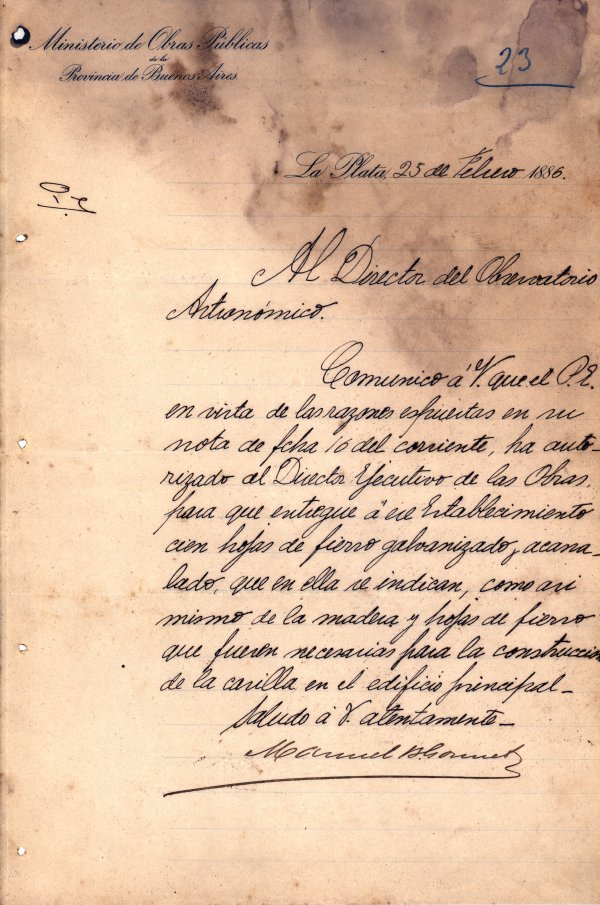 Ministerio de Obras Públicas
de la
Provincia de Buenos Aires
23
La Plata, 25 de Febrero 1886.
Al Director del Observatorio
Astronómico.
Comunico á V. que el P. E.
en vista de las razones espuestas en su
nota de fcha 16 del corriente, ha auto-
rizado al Director Ejecutivo de las Obras,
para que entregue á ese Establecimiento
cien hojas de fierro galvanizado, acana-
lado, que en ella se indican, como asi
mismo de la madera y hojas de fierro
que fueren necesarias para la construccion
de la casilla en el edificio principal-
Saludo á V. atentamente-
Manuel B. Gonnet